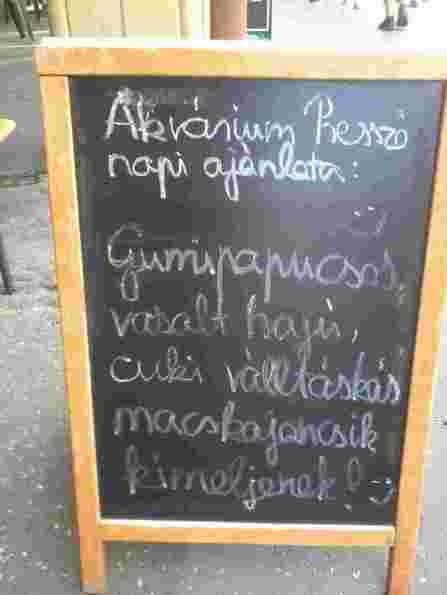 Akvárium Presszó
napi ajánlata:
:)
Gumipapucsos,
vasalt hajú,
cuki válltáskás
macskajancsik
kíméljenek! :)